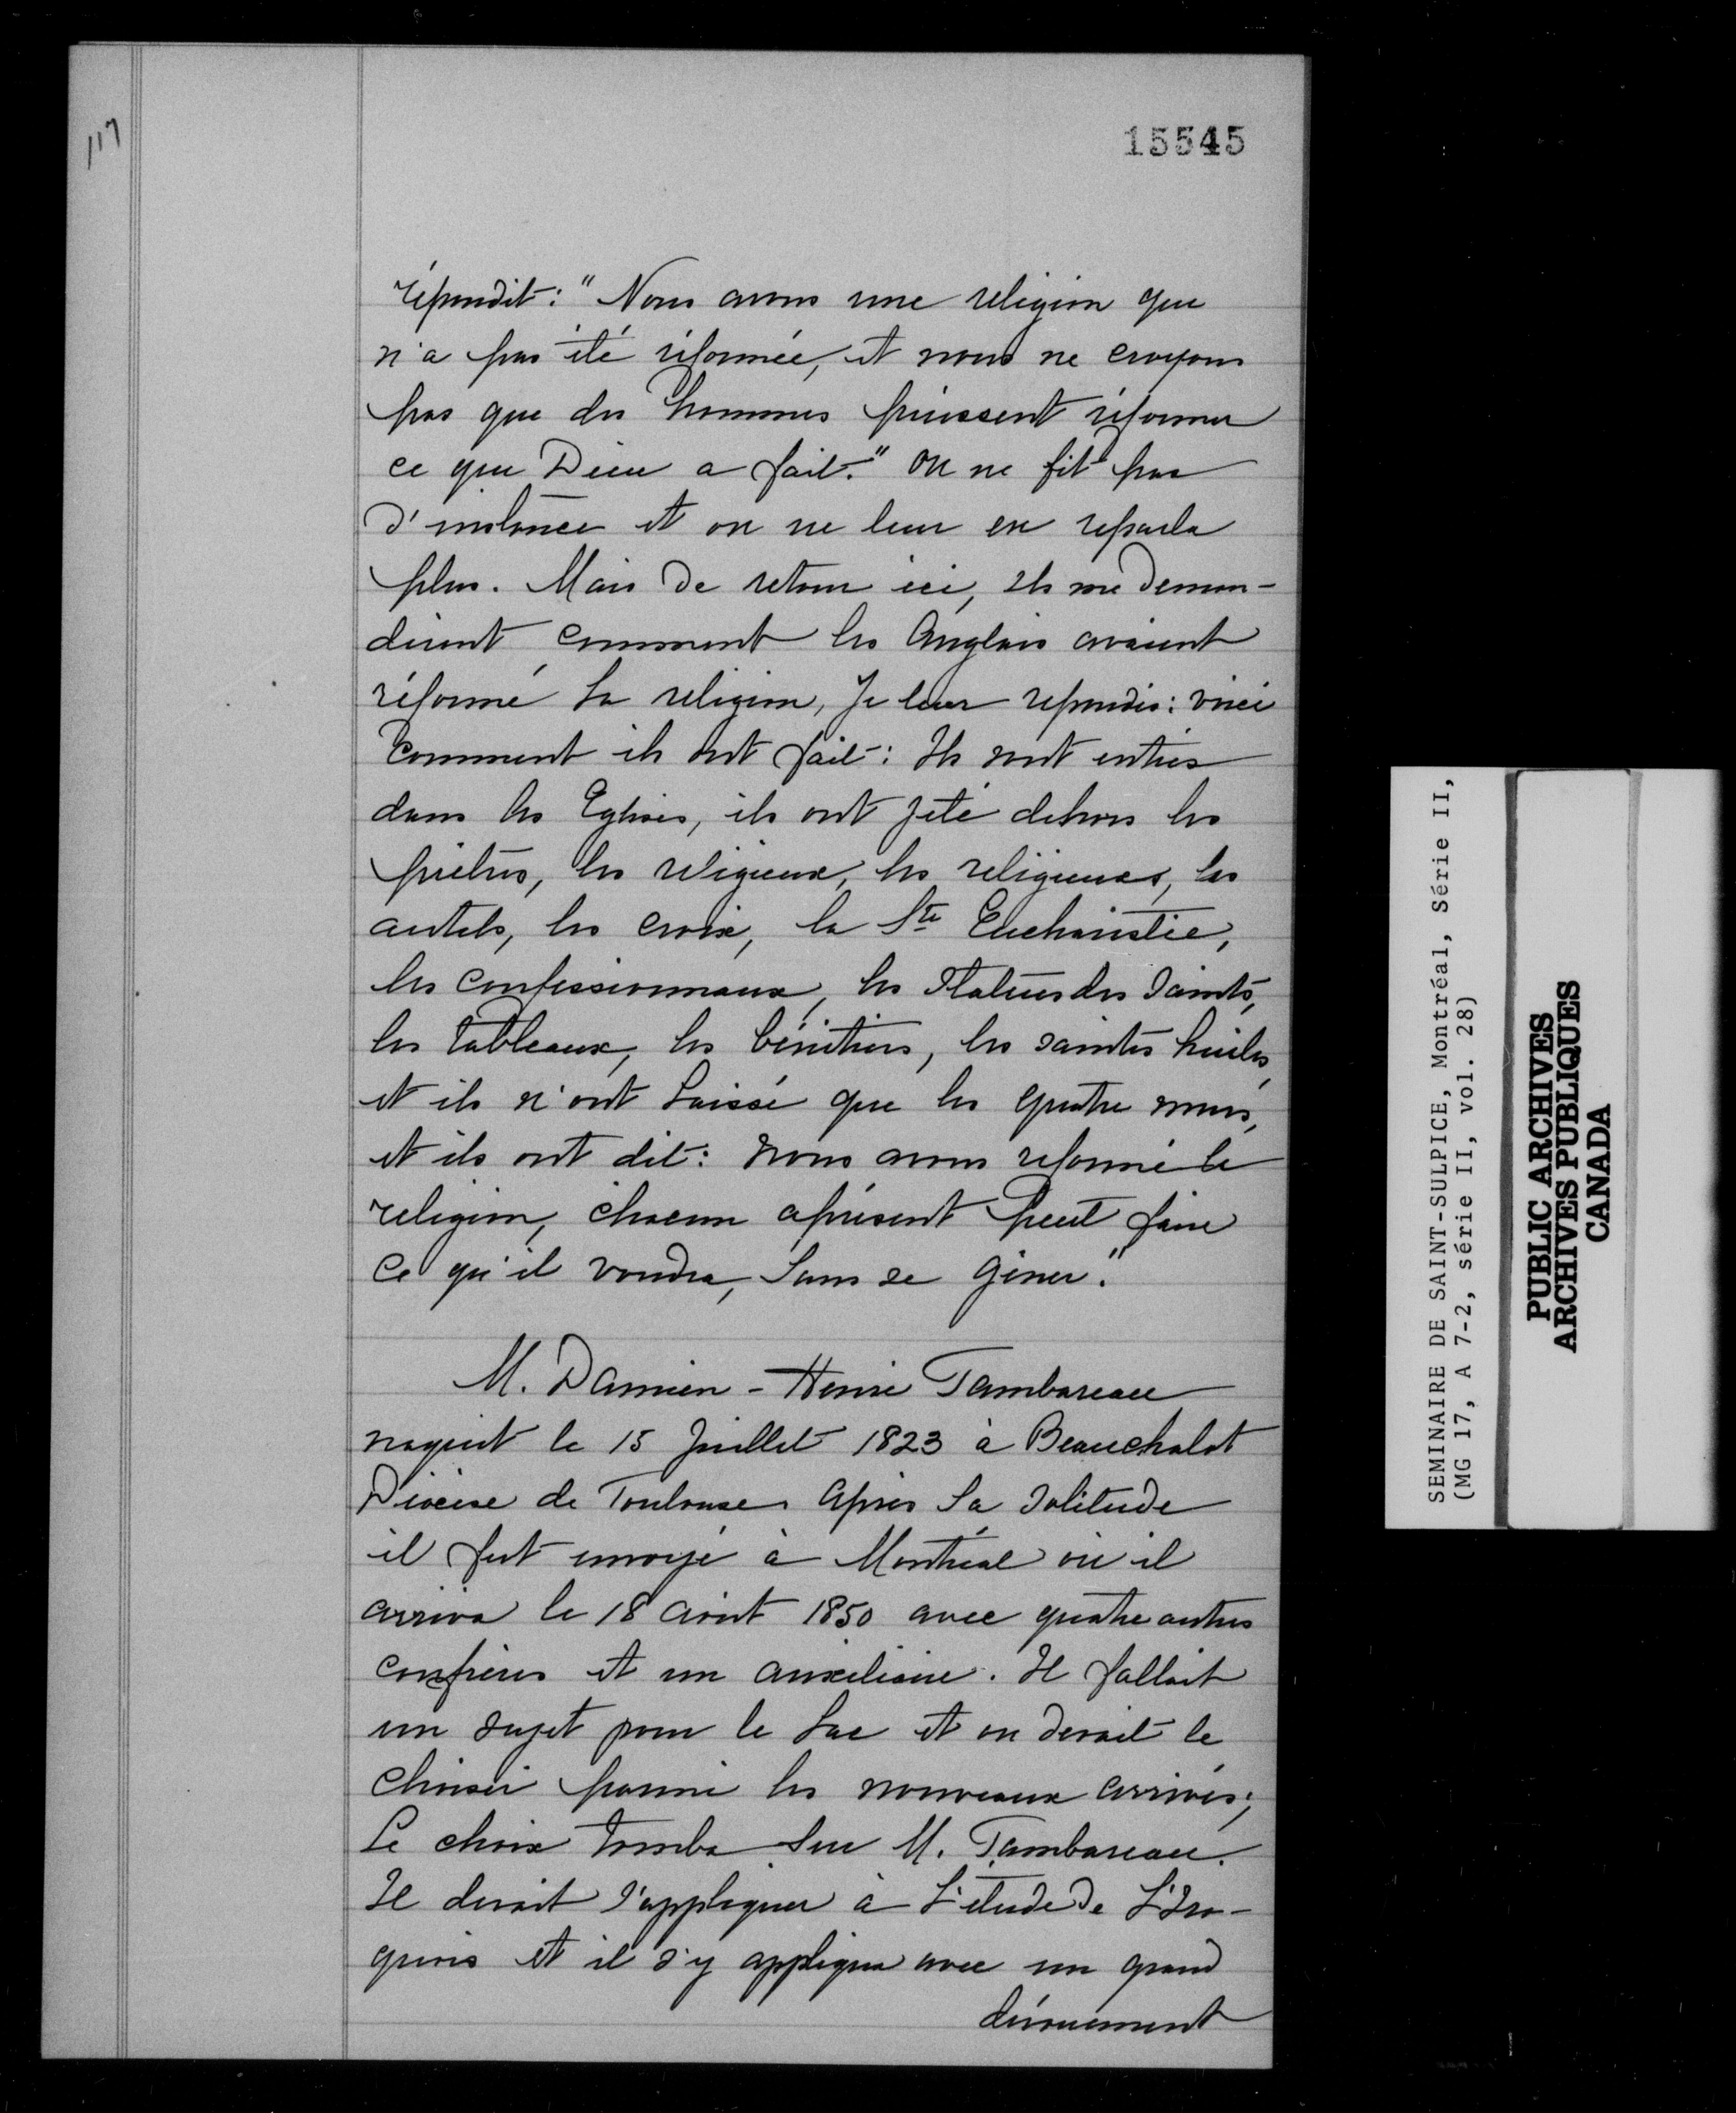 117
15545
répondit: "Nous avons une religion que
n'a pas été réformée, et nous ne croyons
pas que des hommes puissent réformer
ce que Dieu a fait." On ne fit pas
d'instance et on ne leur en reparla
plus. Mais de retour ici, ils me deman-
dèrent comment les Anglais avaient
réformé la religion, Je leur repondis: voici
comment ils ont fait: Ils sont entrés
dans les Eglises, ils ont jeté dehors les
prêtres, les religieux, les religieuses, les
autels, les croix, la Ste Eucharistie,
les confessionnaux, les Statues des Saints,
les tableaux, les bénitiers, les saintes huiles,
et ils n'ont laissé que les quatre murs,
et ils ont dit: nous avons reformé la
religion, chacun aprésent peut faire
ce qu'il voudra, sans se gêner."
M. Damien - Henri Tambareau
naquit le 15 Juillet 1823 à Beauchalot
Diocèse de Toulouse. Après sa Solitude
il fut envoyé à Montréal où il
arriva le 18 août 1850 avec quatre autres
confrères et un auxiliaire. Il fallait
un sujet pour le Lac et on devait le
choisir parmi les nouveaux arrivés;
Le choix tomba sur M. Tambareau.
Il devait s'appliquer à l'étude de l'Iro-
quois et il s'y appliqua avec un grand
dévouement
SEMINAIRE DE SAINT-SULPICE, Montréal, Série II,
(MG 17, A 7-2, série II, vol. 28)
PUBLIC ARCHIVES
ARCHIVES PUBLIQUES
CANADA